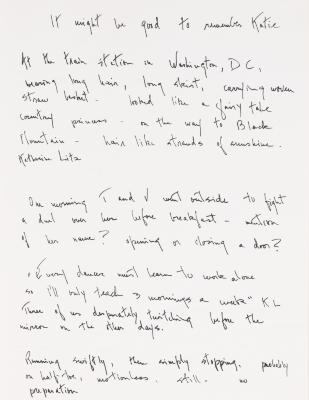 It might be good to remember Katie
At the train station in Washington, D C,
wearing long hair, long skirt, carrying woven
straw basket - looked like a fairy tale
country princess - on the way to Black
Mountain - hair like strands of sunshine.
Katherine Litz
One morning T and V went outside to fight
a duel over her before breakfast - mention
of her name? opening or closing a door?
"Every dancer must learn to work alone
so I'll only teach 3 mornings a week" K L
Three of us desperately twitching before the
mirror on the other days.
Running swiftly, then simply stopping. probably
on half-toe, motionless. still. no
preparation